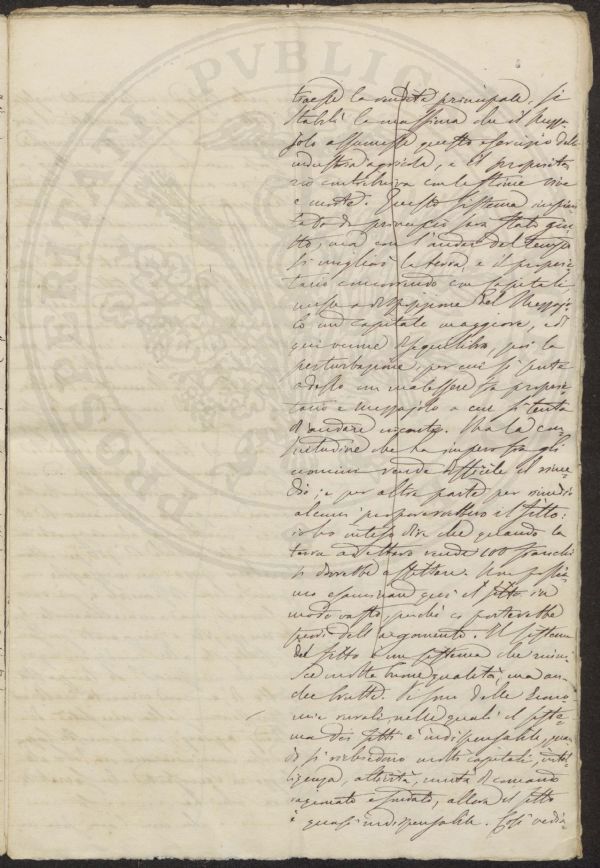 traesse la rendita principale. Si
stabilì la massima che il Mezza-
jolo assumesse questo esercizio della
industria agricola, e il proprieta-
rio contribuiva con le scorte vive
e morte. Questo sistema impian-
tato da principio sarà stato giu-
sto, ma con l'andar del tempo
si migliorò la terra, e il proprie-
tario concorrendo con capitale
messo a disposizione del Mezzajo-
lo un capitale maggiore, e di
qui venne disequilibrio, poi la
perturbazione, per cui si sente
adesso un malessere tra proprie-
tario e mezzajolo a cui si tenta
di andare incontro. Ma la con-
suetudine che ha impero fra gli
uomini rende difficile il rime-
dio; e per altra parte per rimedio
alcuni proporrebbero il fitto:
io ho inteso dire che quando la
terra a rende 100 franchi
si dovrebbe affittare. Non possia-
mo esaminare quì il fitto in
modo vasto, perchè ci porterebbe
fuori dell'argomento. Il sistema
del fitto è un sistema che riuni-
sce molte buone qualità, ma an-
che brutte. Vi sono delle Econo-
mie rurali, nelle quali il siste-
ma dei fitti è indispensabile, quan-
do si richiedono molti capitali, intel-
ligenza, attività, unità di comando
ragionato e fondato, allora il fitto
è quasi indispensabile. Così vedia-
PVBLIC